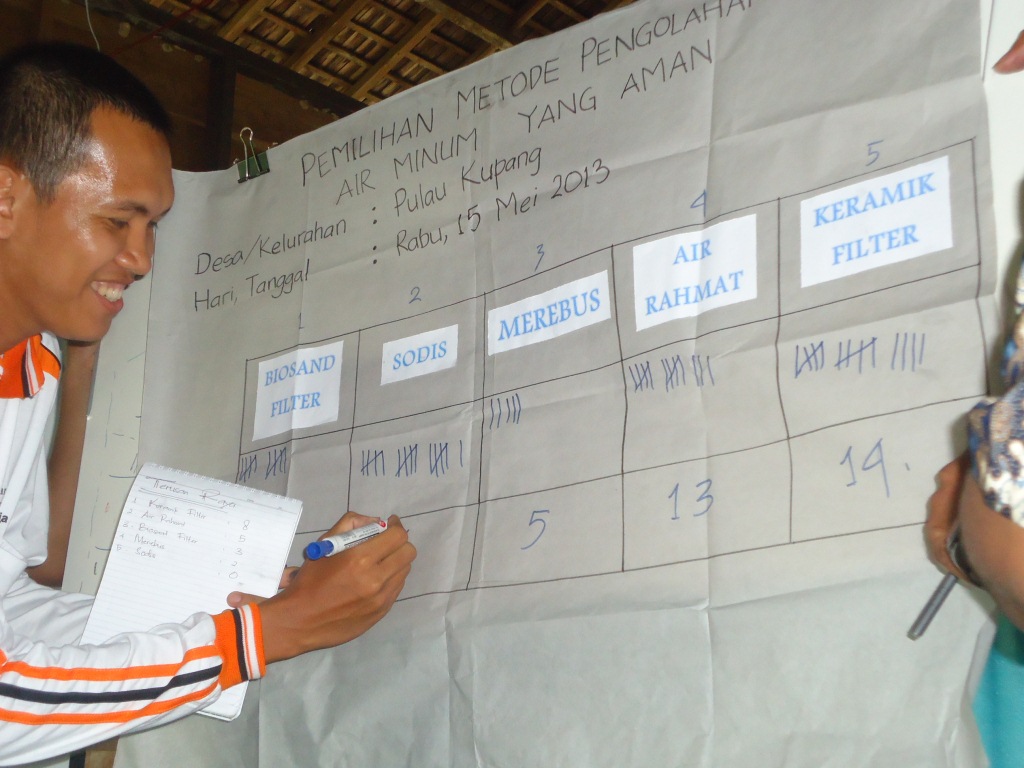 PEMILIHAN METODE PENGOLAHAN
AIR MINUM YANG AMAN
Desa/Kelurahan : Pulau Kupang
Hari, Tanggal : Rabu, 15 Mei 2013
1 2 3 4 5
BIOSAND
FILTER
SODIS
MEREBUS
AIR
RAHMAT
KERAMIK
FILTER
5 13 14.
1 Keramik Filter : 8
2. Air Rahmat : 5
3. Biosand Filter : 3
4 Merebus : 2
5 Sodis : 0